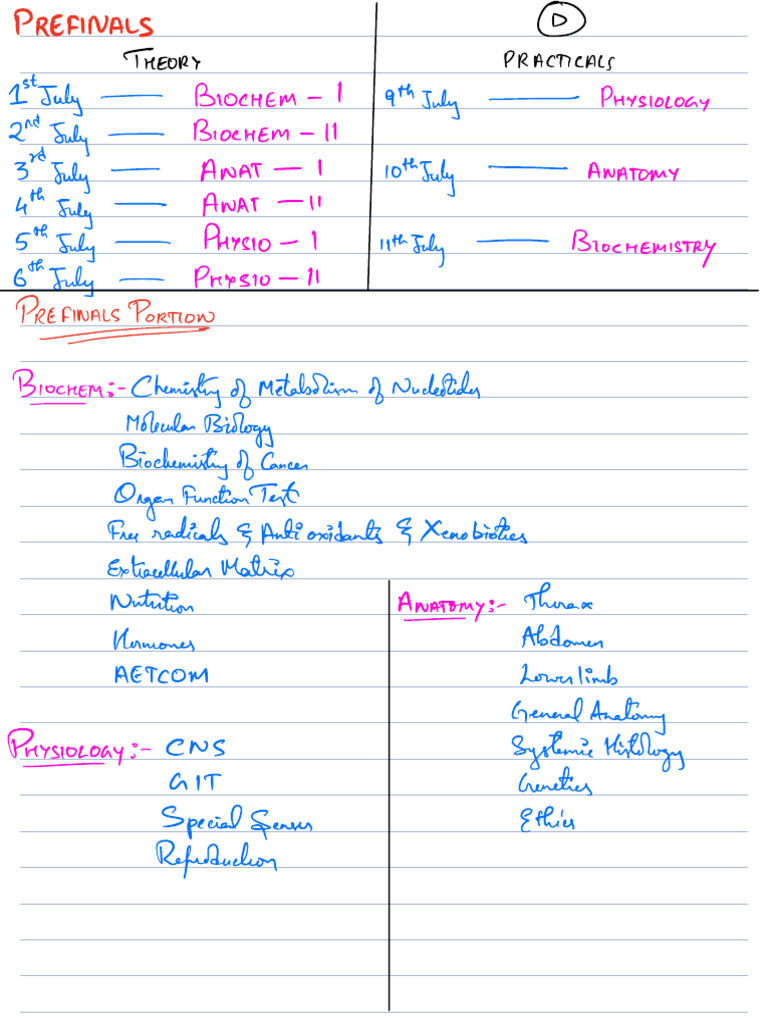 PREFINALS
D
THEORY
PRACTICALS
1st July — BIOCHEM – I
2nd July — BIOCHEM – II
3rd July — ANAT — I
4th July — ANAT — II
5th July — PHYSIO – I
6th July — PHYSIO – II
9th July — PHYSIOLOGY
10th July — ANATOMY
11th July — BIOCHEMISTRY
PREFINALS PORTION
BIOCHEM:- Chemistry of Metabolism of Nucleotides
Molecular Biology
Biochemistry of Cancer
Organ Function Test
Free radicals & Anti oxidants & Xenobiotics
Extracellular Matrix
Nutrition
Hormones
AETCOM
PHYSIOLOGY:- CNS
GIT
Special Senses
Reproduction
ANATOMY:- Thorax
Abdomen
Lower limb
General Anatomy
Systemic Histology
Genetics
Ethics